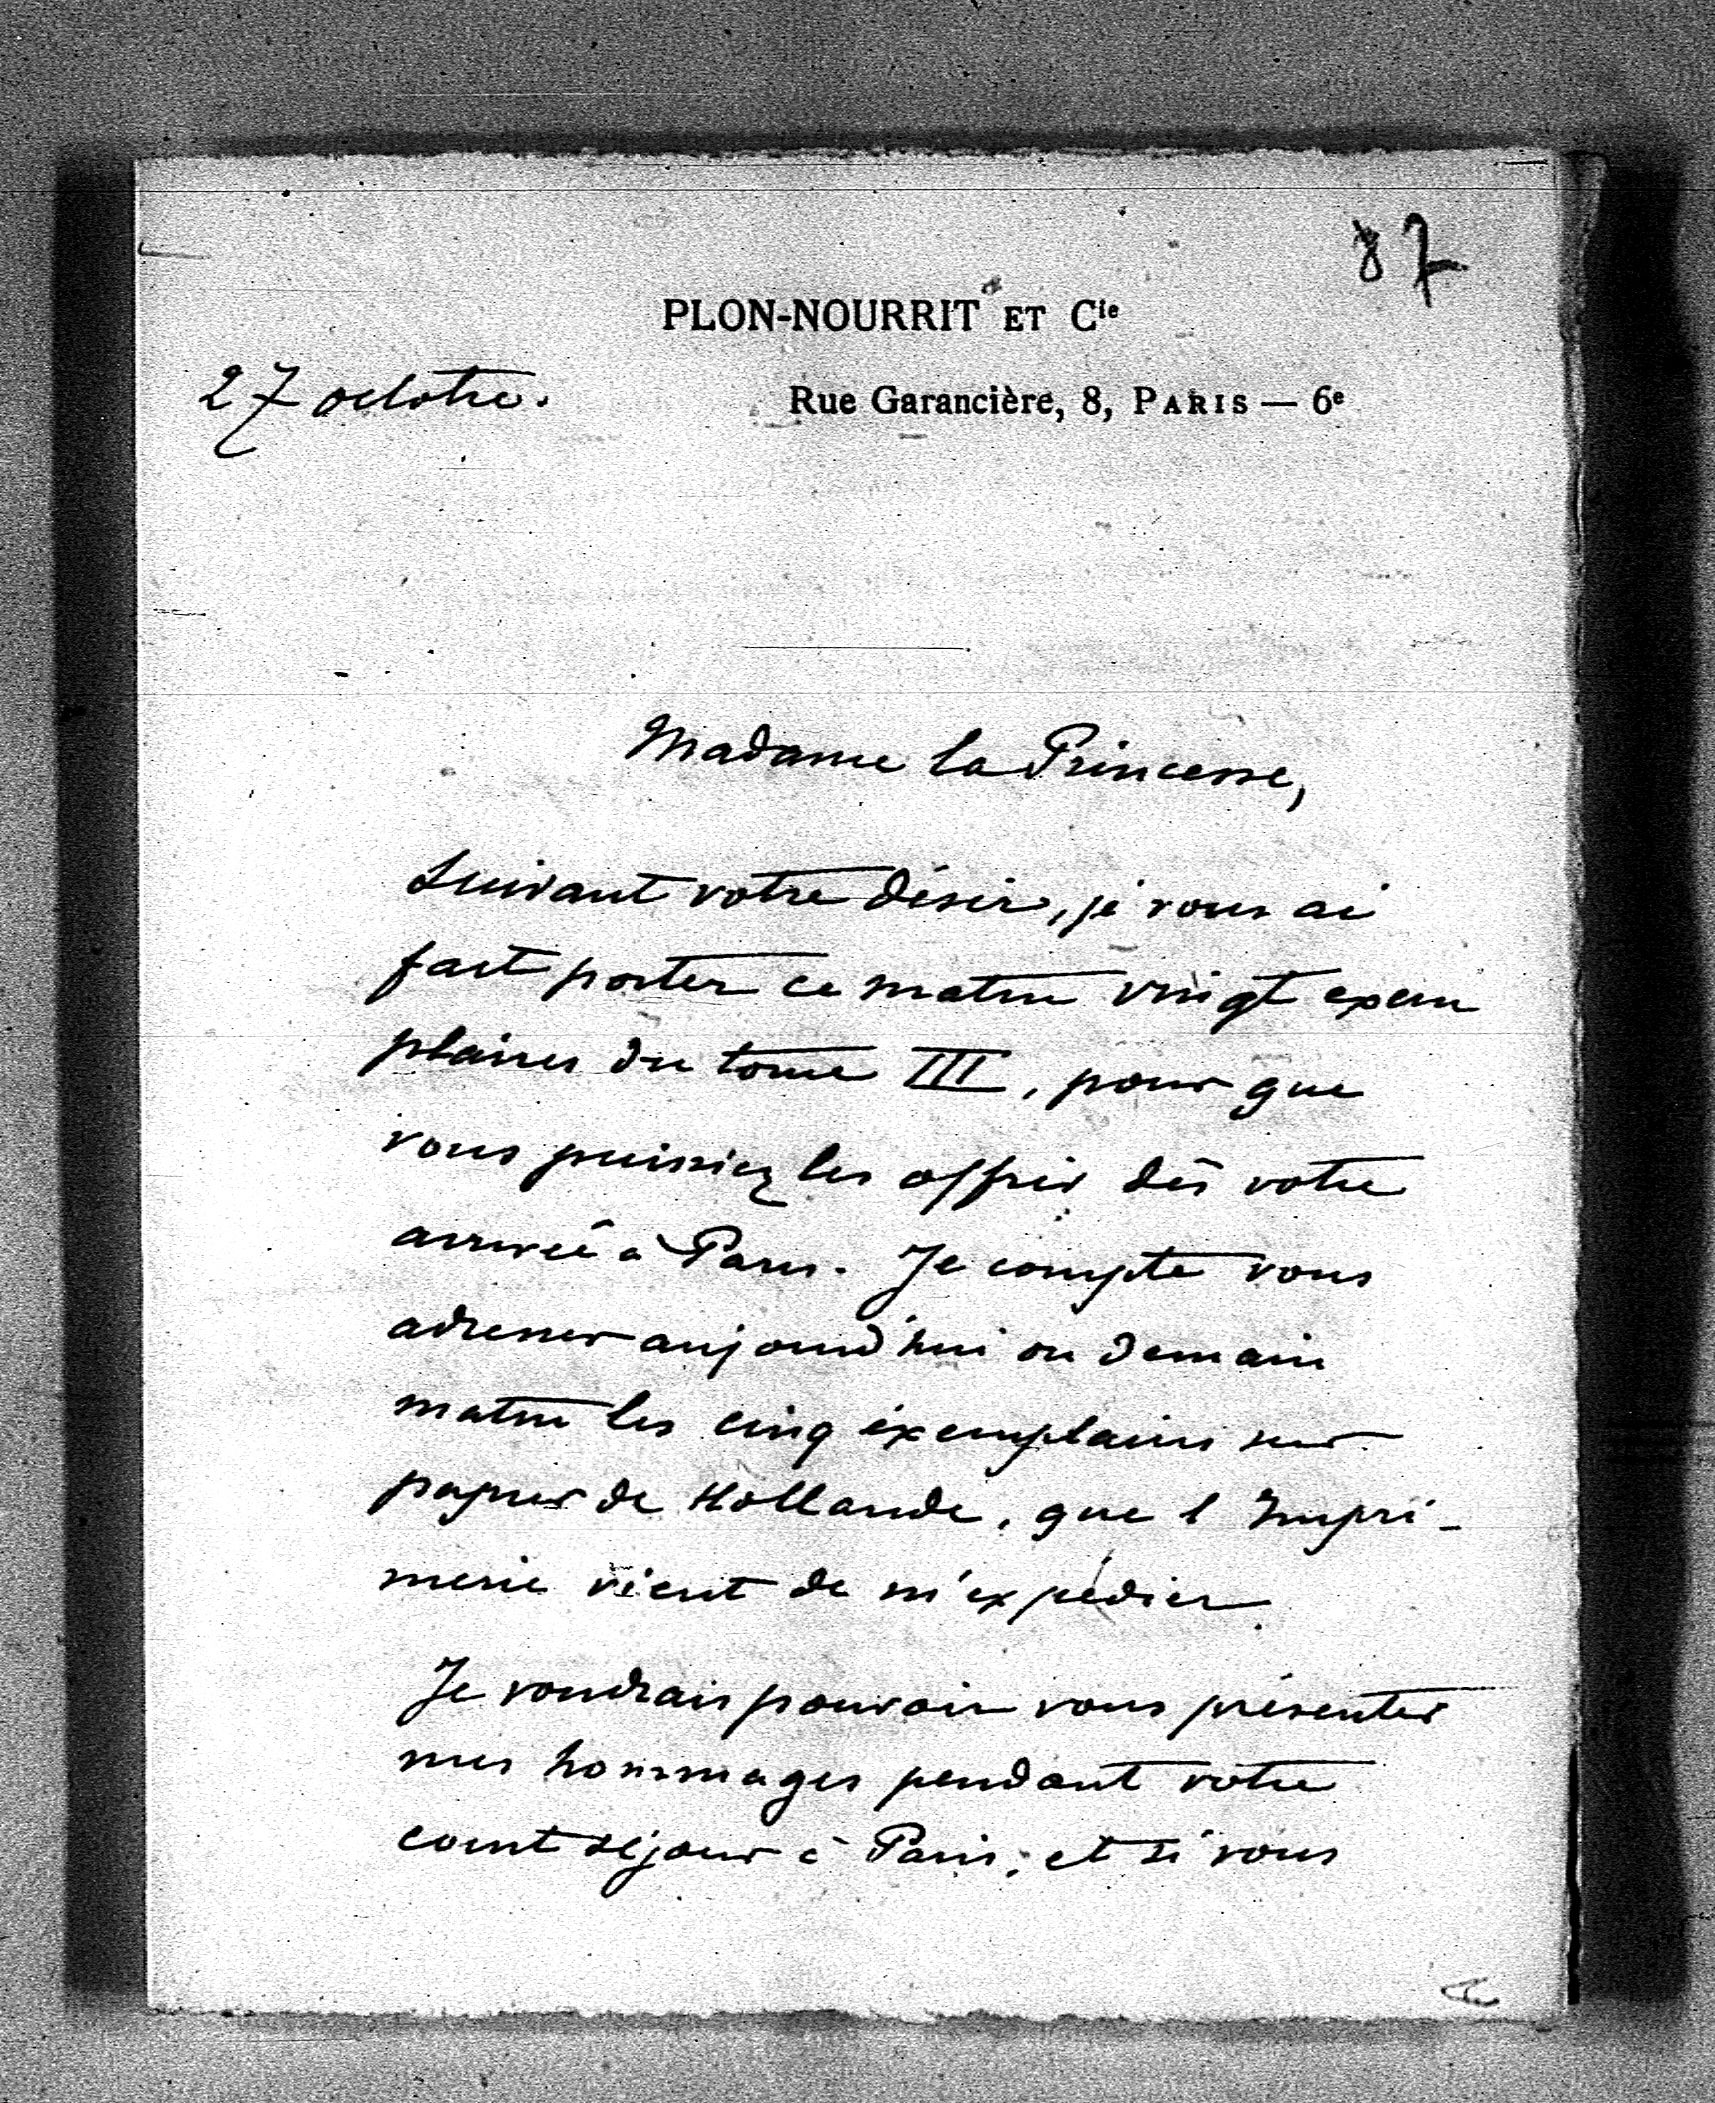 87
PLON-NOURRIT ET Cie
27 octobre.
Rue Garancière, 8, PARIS — 6e
Madame la Princesse,
Suivant votre désir, je vous ai
fait porter ce matin vingt exem
plaires du tome III, pour que
vous puissiez les offrir dès votre
arrivée à Paris. Je compte vous
adresser aujourd'hui ou demain
matin les cinq exemplaires sur
papier de Hollande, que l'Impri-
merie vient de m'expédier.
Je voudrais pouvoir vous présenter
mes hommages pendant votre
court séjour à Paris, et si vous